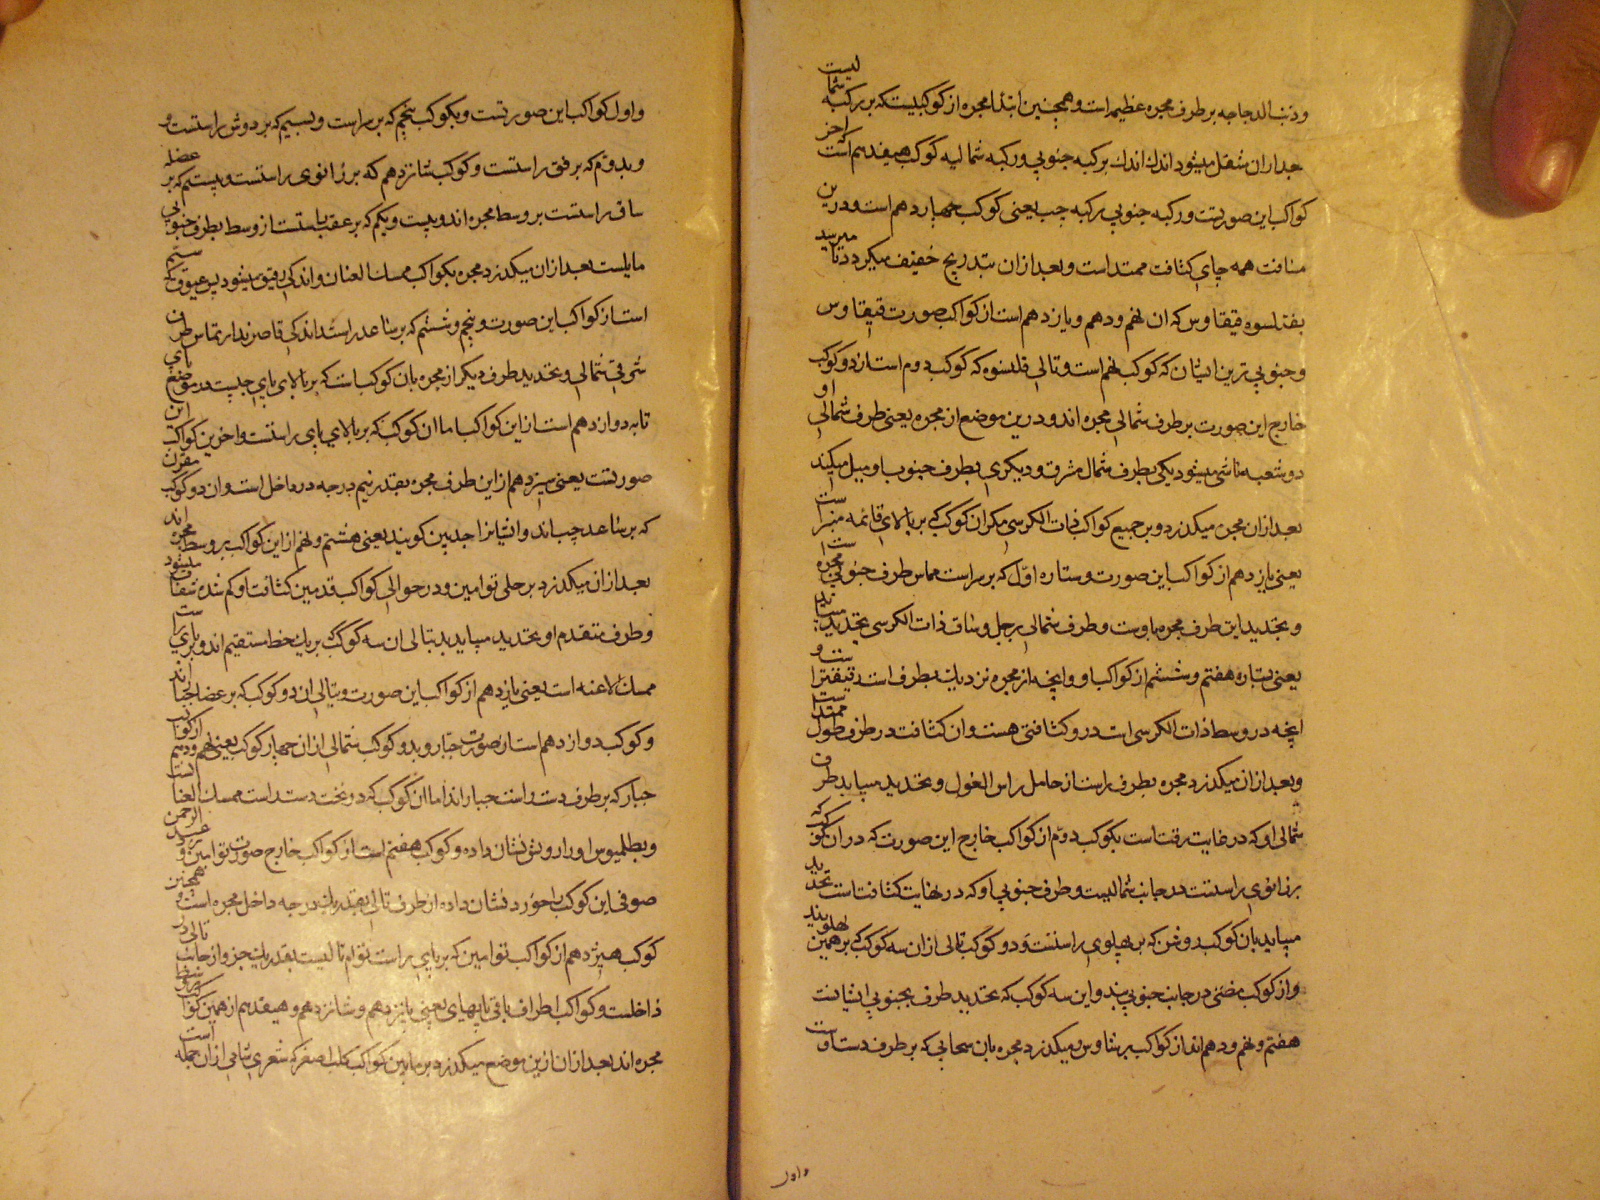 و ذنب الدجاجه بر طرف مجره عظیمه است و همچنین ابتدا مجره از کوکبیست که بر رکبه شمالیست
بعد از ان منتقل میشود اندک اندک بر کبه جنوبی و رکبه شمالیه کوکب هیفدهم است که اخر
کواکب این صورتست و رکبه جنوبی رکبه چپ یعنی کوکب چهاردهم است و درین
مسافت همه جای کثافت ممتد است و بعد از ان بتدریج خفیف میگردد تا میرسد
بقلنسوه قیقاوس که ان نهم و دهم و یازدهم است از کواکب صورت قیقاوس
و جنوبی ترین ایشان که کوکب نهم است و تالی قلنسوه که کوکب دوم است از دو کوکب
خارج این صورت بر طرف شمالی مجره اند و درین موضع از مجره یعنی طرف شمالی او
دو شعبه ناشی میشود یکی بطرف شمال مشرق و دیگری بطرف جنوب او میل میکند
بعد ازان مجره میگذرد و بر جمیع کواکب ذات الکرسی مگر ان کوکب که بر بالای قائمه منبر است
یعنی یازدهم از کواکب این صورت و ستاره اول که بر سر است مماس طرف جنوبی مجره است
و بتحدید این طرف مجره باوست و طرف شمالی برجل و ساق ذات الکرسی بتحدید میباید
یعنی بستاره هفتم و ششم از کواکب او و انچه از مجره نزدیک بطرف است رقیقتر است و
انچه در وسط ذات الکرسی است درو کثافتی هست و ان کثافت در طرف طول ممتد است
و بعد ازان میگذرد مجره بطرف راست از حامل راس الغول و بتحدید میباید طرف
شمالی او که در غایت رقت است بکوکب دوم از کواکب خارج این صورت که در ان کوکبی که
بر زانوی راستست در جانب شمالیست و طرف جنوبی او که در نهایت کثافت است تحدید
میباید بان کوکب روشن که بر پهلوی راستست و دو کوکب تالی ازان سه کوکب که بر همین پهلویند
و از کوکب مضئ در جانب جنوبی بیند و این سه کوکب که بتحدید طرف بجنوبی ایشانست
هفتم و نهم و دهم اند از کواکب برشاوس و میگذرد مجره بان سحابی که بر طرف دست اوست
و اول
و اول کواکب این صورتست و بکوکب پنجم که بر سر است و بسیم که بر دوش راستست و
و بدوم که بر مرفق راستست و کوکب شانزدهم که بر زانوی راستست و بیستم که بر عضله
ساق راستست بر وسط مجره اند و بیست و یکم که بر عقب پاست از وسط بطرف جنوبی
مایلست بعد ازان میگذرد مجره بکواکب ممسک العنان و اندکی رقیق میشود پس عیوق که سیم
است از کواکب این صورت و پنجم و ششم که بر ساعد راستند اندکی قاصرند از تماس طرف
شرقی شمالی و بتحدید طرف دیگر از مجره بان کوکب است که بر بالای پای چپست در موضع پای
تا به دوازدهم است از این کواکب اما ان کوکب که بر بالای پای راستست و اخرین کواکب این
صورتست یعنی سیزدهم از این طرف مجره بقدر نیم درجه در داخل است و ان دو کوکب مقترن
که بر ساعد چپ اند و انشانرا جدیین کویند یعنی هشتم و نهم از این کواکب بر وسط مجره اند
بعد ازان میگذرد بر جلی توامین و در حوالی کواکب قدمین کثافت او کم شده شفاف میشود
و طرف متقدم او بتحدید میباید بتالی ان سه کوکب که بر یک خط مستقیم اند و برای است
ممسک الاعنه است یعنی یازدهم از کواکب این صورت و بتالی ان دو کوکب که بر عضا الجبا اند
و کوکب دوازدهم است از صورت جبار و بدو کوکب شمالی از ان چهار کوکب یعنی نهم و دهم از کواکب
جبار که بر طرف دست راست جبار اند اما ان کوکب که در تحت دست راست ممسک العنا است
و بطلمیوس او را روشن نشان داده و کوکب هفتم است از کواکب خارج صورت توامین و عبد الرحمن
صوفی این کوکب را خورد نشان داده از طرف تالی بقدر یک درجه داخل مجره است و همچنین
کوکب هیژدهم از کواکب توامین که بر پای راست توام تالیست بقدر یک جزو از جانب تالی در
داخلست و کواکب اطراف باقی پایهای یعنی پانزدهم و شانزدهم و هیفدهم از همین کواکب
مجره اند بعد ازان ازین موضع میگذرد بر مابین کواکب کلب اصغر که شعری شامی ازان جمله است